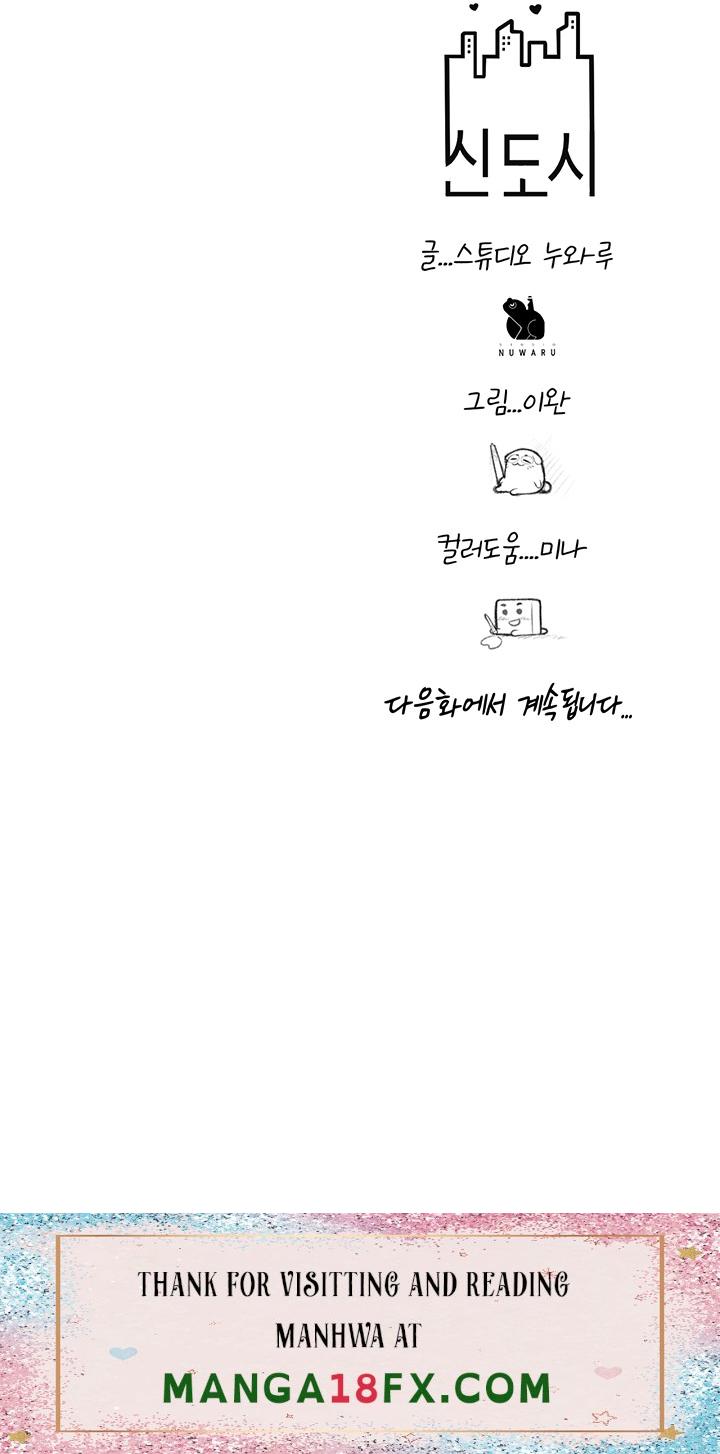 신도시
글...스튜디오 누와루
NUWARU
그림...이완
컬러도움....미나
다음화에서 계속됩니다...
THANK FOR VISITTING AND READING
MANHWA AT
MANGA18FX.COM